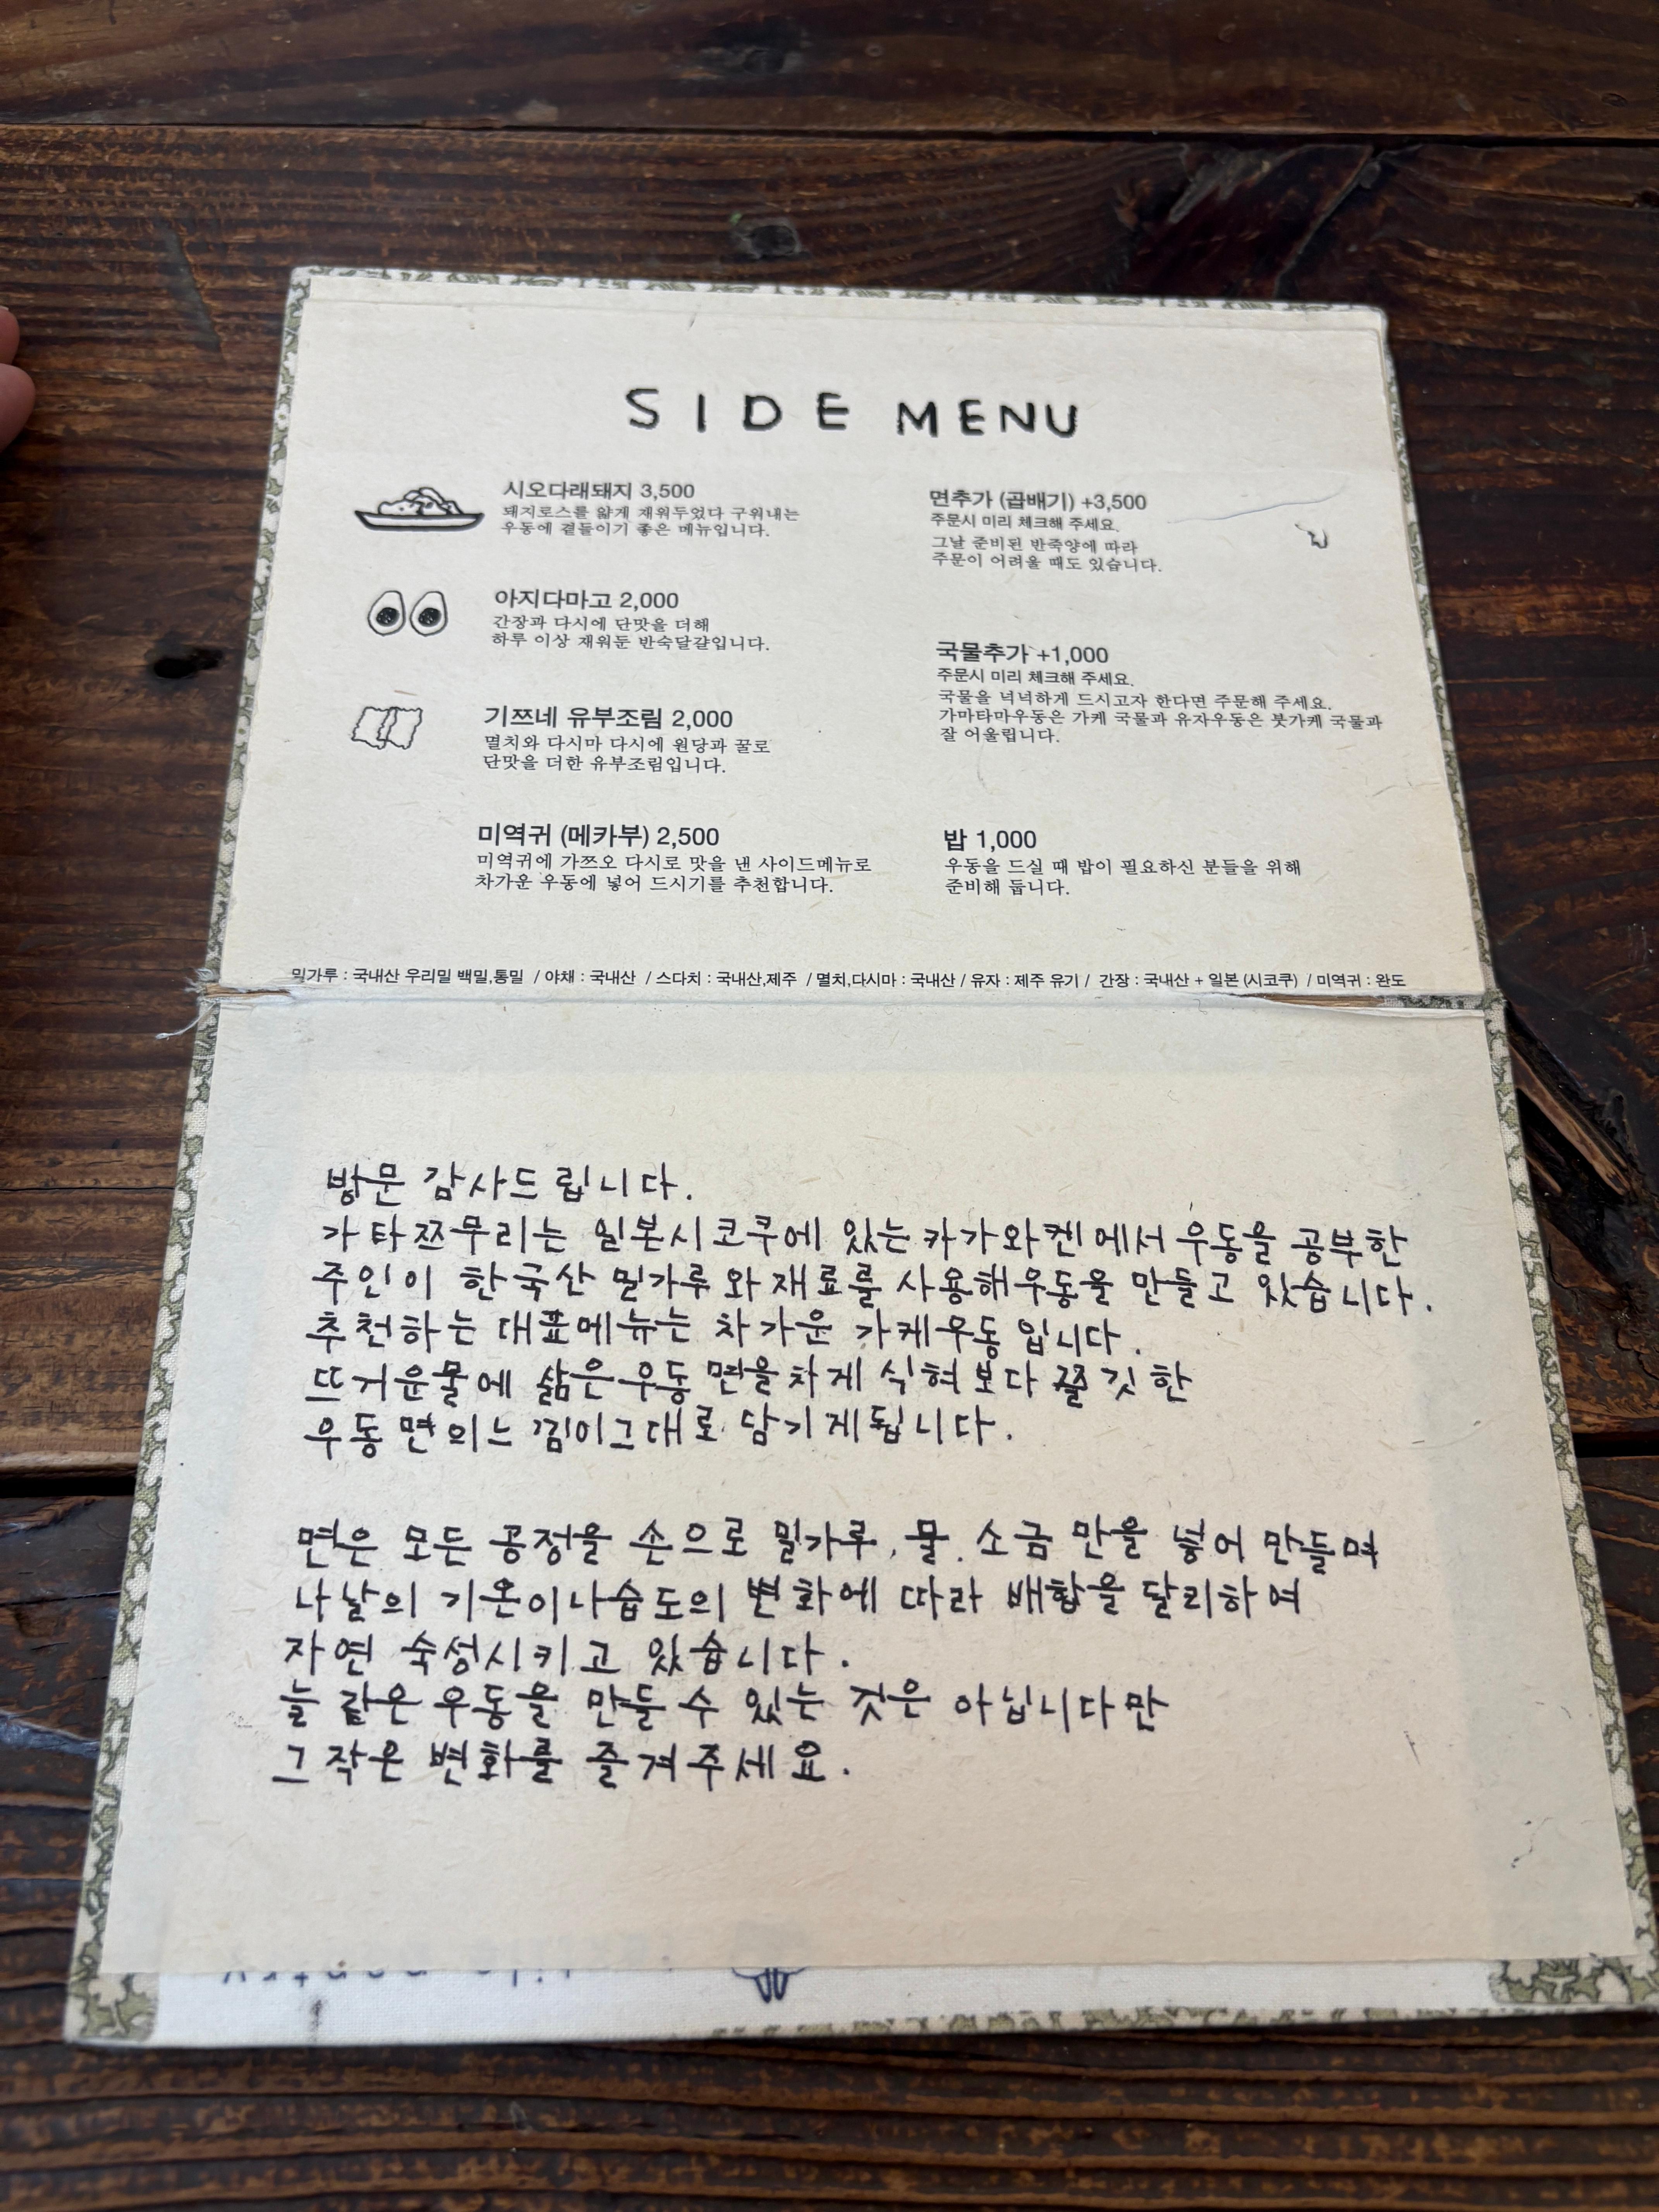 SIDE MENU
시오다래돼지 3,500
돼지로스를 얇게 재워두었다 구워내는
우동에 곁들이기 좋은 메뉴입니다.
아지다마고 2,000
간장과 다시에 단맛을 더해
하루 이상 재워둔 반숙달걀입니다.
기쯔네 유부조림 2,000
멸치와 다시마 다시에 원당과 꿀로
단맛을 더한 유부조림입니다.
미역귀 (메카부) 2,500
미역귀에 가쯔오 다시로 맛을 낸 사이드메뉴로
차가운 우동에 넣어 드시기를 추천합니다.
면추가 (곱배기) +3,500
주문시 미리 체크해 주세요.
그날 준비된 반죽양에 따라
주문이 어려울 때도 있습니다.
국물추가 +1,000
주문시 미리 체크해 주세요.
국물을 넉넉하게 드시고자 한다면 주문해 주세요.
가마타마우동은 가케 국물과 유자우동은 붓가케 국물과
잘 어울립니다.
밥 1,000
우동을 드실 때 밥이 필요하신 분들을 위해
준비해 둡니다.
밀가루 : 국내산 우리밀 백밀,통밀 / 야채 : 국내산 / 스다치 : 국내산,제주 / 멸치,다시마 : 국내산 / 유자 : 제주 유기 / 간장 : 국내산 + 일본 (시코쿠) / 미역귀 : 완도
방문 감사드립니다.
가타쯔무리는 일본시코쿠에 있는 카가와켄에서 우동을 공부한
주인이 한국산 밀가루와 재료를 사용해우동을 만들고 있습니다.
추천하는 대표메뉴는 차가운 가케우동입니다.
뜨거운물에 삶은우동면을차게 식혀보다 쫄깃한
우동면의느낌이그대로 담기게됩니다.
면은 모든 공정을 손으로 밀가루, 물, 소금 만을 넣어 만들며
나날의 기온이나습도의 변화에 따라 배합을 달리하여
자연 숙성시키고 있습니다.
늘 같은 우동을 만들 수 있는 것은 아닙니다만
그 작은 변화를 즐겨주세요.